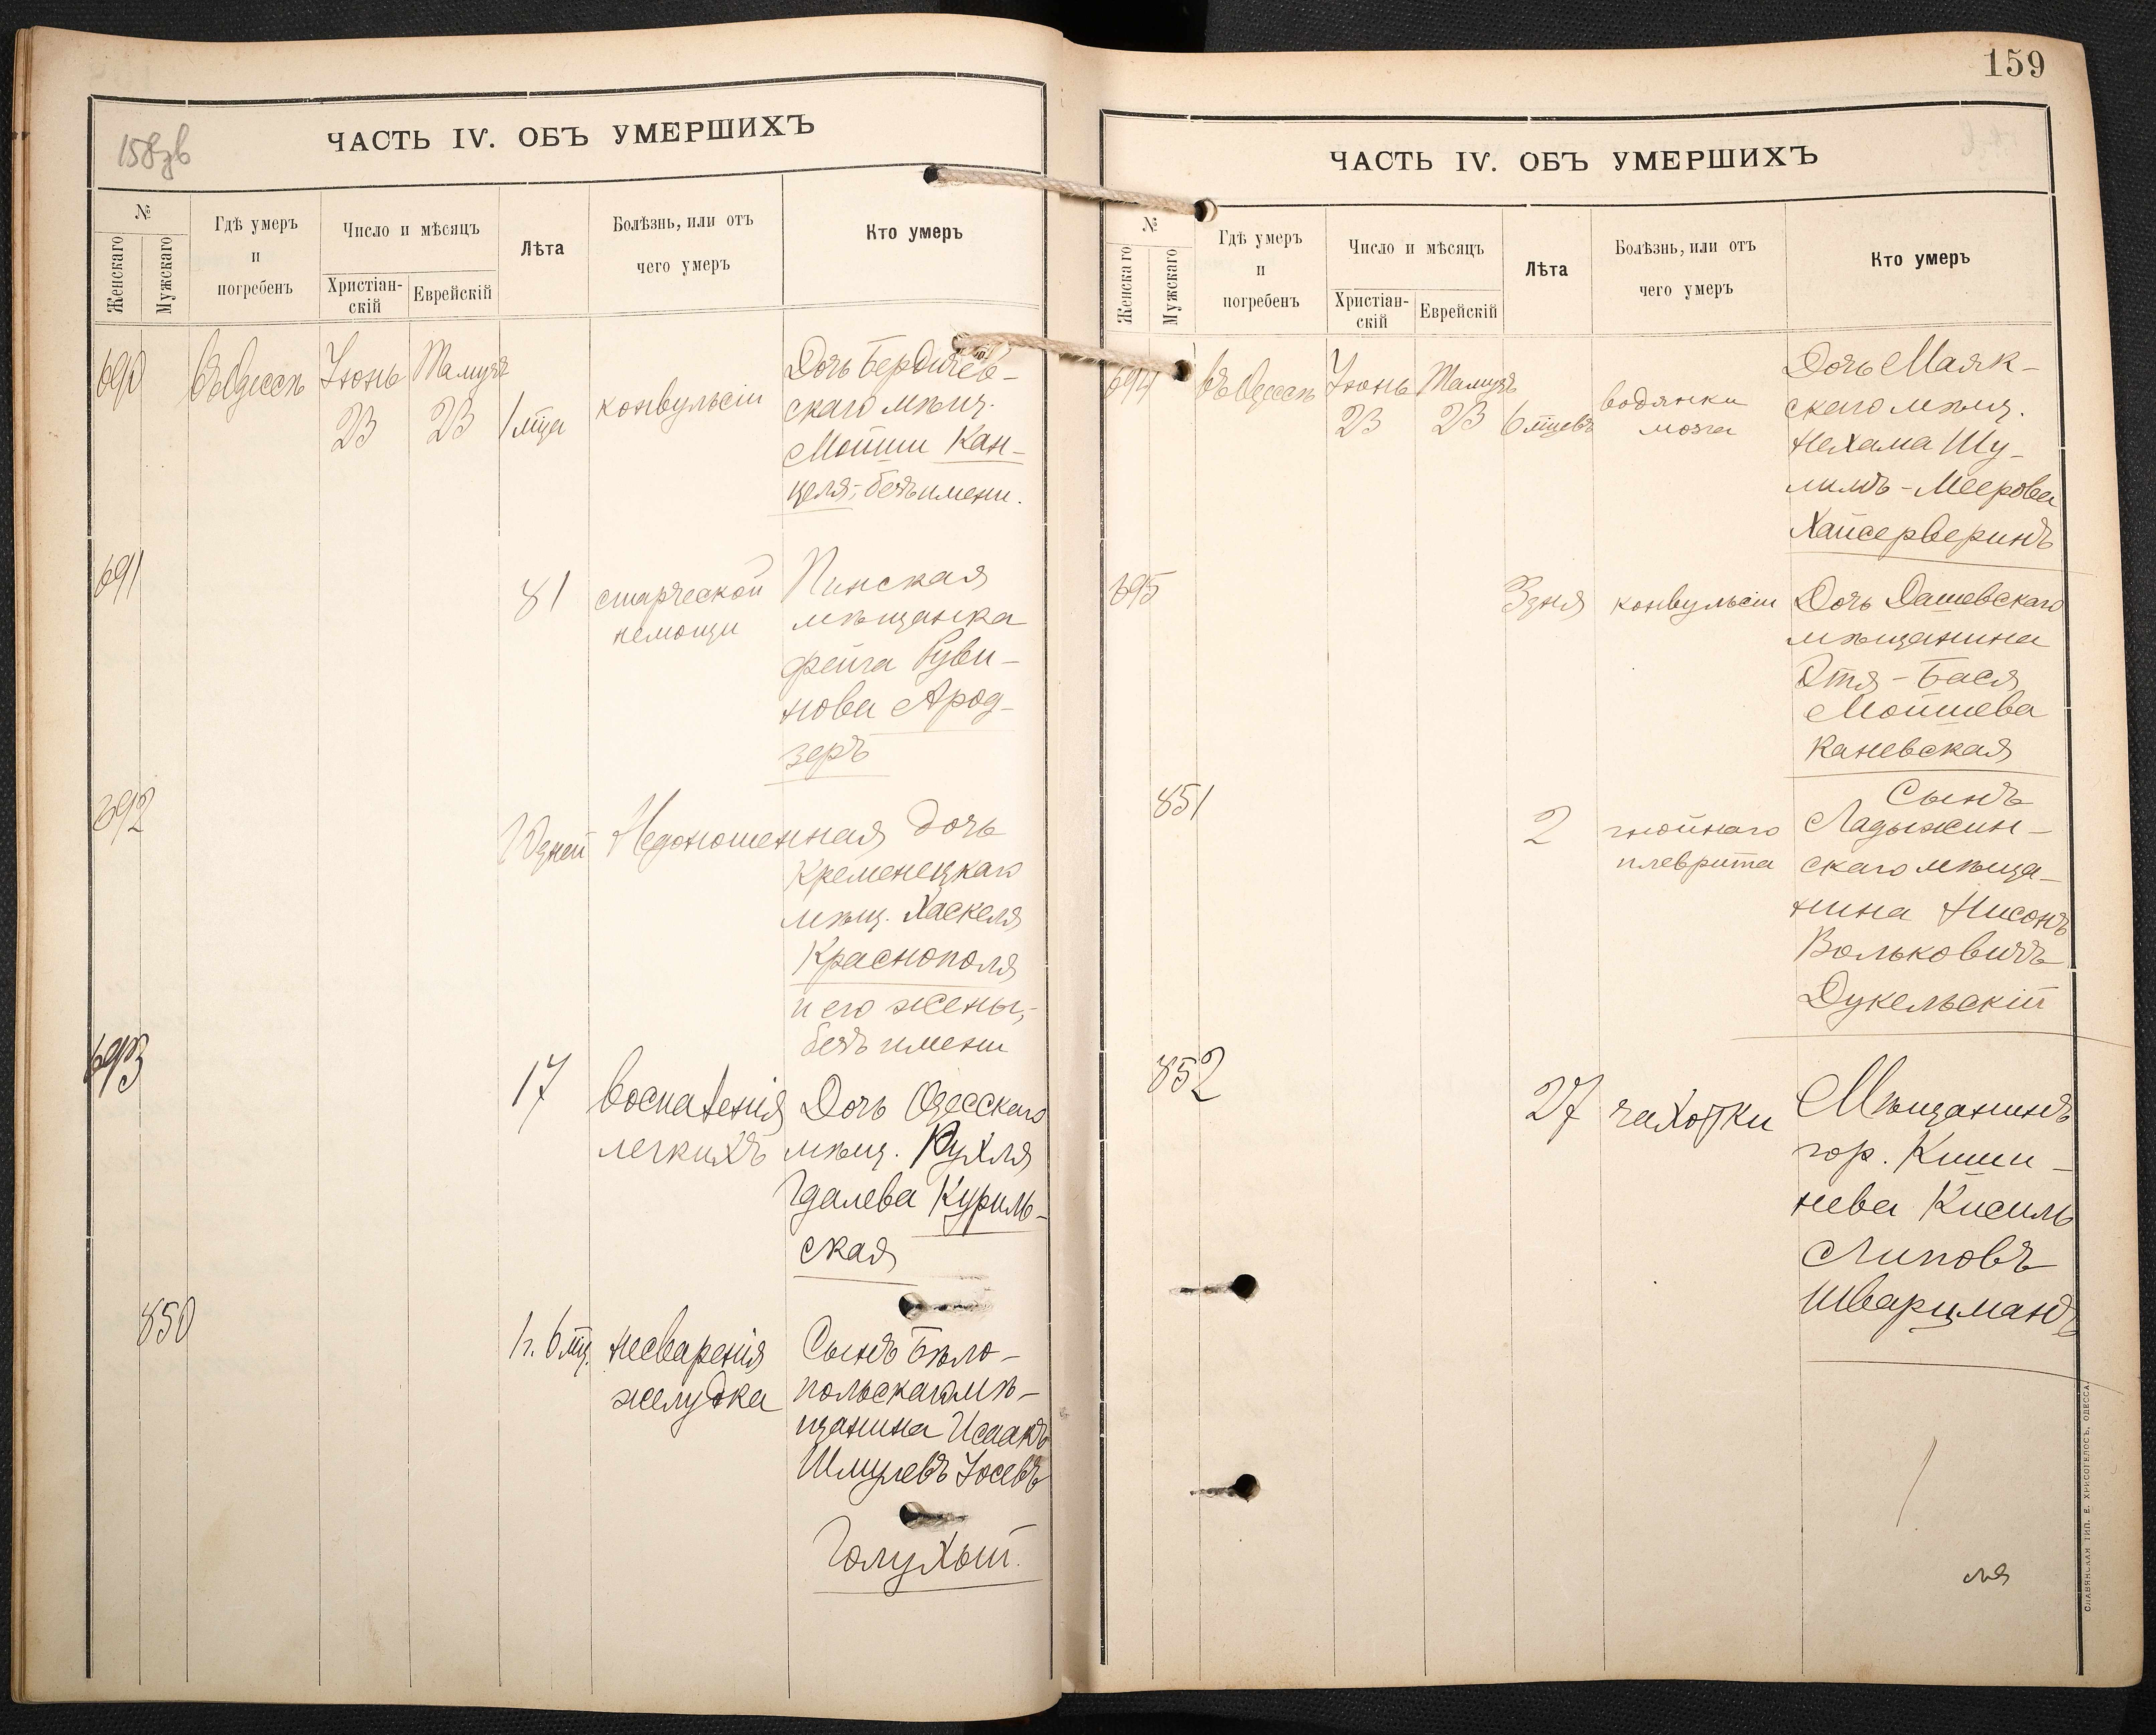 158зв
ЧАСТЬ IV. ОБЪ УМЕРШИХЪ
№
Женскаго
Мужскаго
Гдѣ умеръ
и
погребенъ
Число и мѣсяцъ
Христіан-
скій
Еврейскій
Лѣта
Болѣзнь, или отъ
чего умеръ
Кто умеръ
690 въ Одессѣ Іюнь 23 Тамузъ 23 1 мца конвульсіи
Дочь Бердичев-
скаго мѣщ.
Мошки Кан-
целя, безъ имени.
691 81 старческой
немощи
Пинская
мѣщанка
Фейга Руви-
нова Арод-
зеръ
692 10 дней Недоношенная дочь
Кременецкаго
мѣщ. Хаскеля
Краснополя
и его жены,
безъ имени
693 17 воспаленія
легкихъ
Дочь Одесскаго
мѣщ. Рухля
Гдалева Куриль-
ская
850 1 г. 6 мц. несваренія
желудка
Сынъ Бѣло-
польскаго мѣ-
щанина Исаакъ
Шмулевъ Іосевъ
Голухый.
159
ЧАСТЬ IV. ОБЪ УМЕРШИХЪ
№
Женскаго
Мужскаго
Гдѣ умеръ
и
погребенъ
Число и мѣсяцъ
Христіан-
скій
Еврейскій
Лѣта
Болѣзнь, или отъ
чего умеръ
Кто умеръ
694 въ Одессѣ Іюнь 23 Тамузъ 23 6 мцевъ водянки
мозга
Дочь Маяк-
скаго мѣщ.
Нехама Шу-
лимъ-Меерова
Хайсерверинъ
695 3 дня конвульсіи
Дочь Дашевскаго
мѣщанина
Этя-Бася
Мошкева
Каневская
851 2 гнойнаго
плеврита
Сынъ
Ладыжин-
скаго мѣща-
нина Нисонъ
Вольковичъ
Дукельскій
852 27 чахотки
Мѣщанинъ
гор. Киши-
нева Кисиль
Липовъ
Шварцманъ
СЛАВЯНСКАЯ ТИП. Е. ХРИСОГЕЛОСЪ, ОДЕССА.